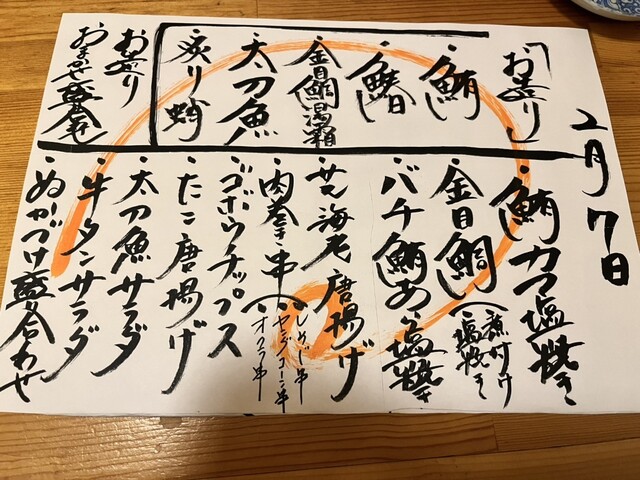 2月7日
「お造り」
・鮪
・金目鯛湯霜
・太刀魚
・炙り蛸
お造り
おまかせ盛合せ
・鮪カマ塩焼き
・金目鯛(煮付け
塩焼き
・バチ鮪あご塩焼き
・サルエビ唐揚げ
・肉巻き串(・しめじ串
・ヤングコーン串
・オクラ串
・ゴボウチップス
・たこ唐揚げ
・太刀魚サラダ
・牛タンサラダ
・ぬかづけ盛り合わせ